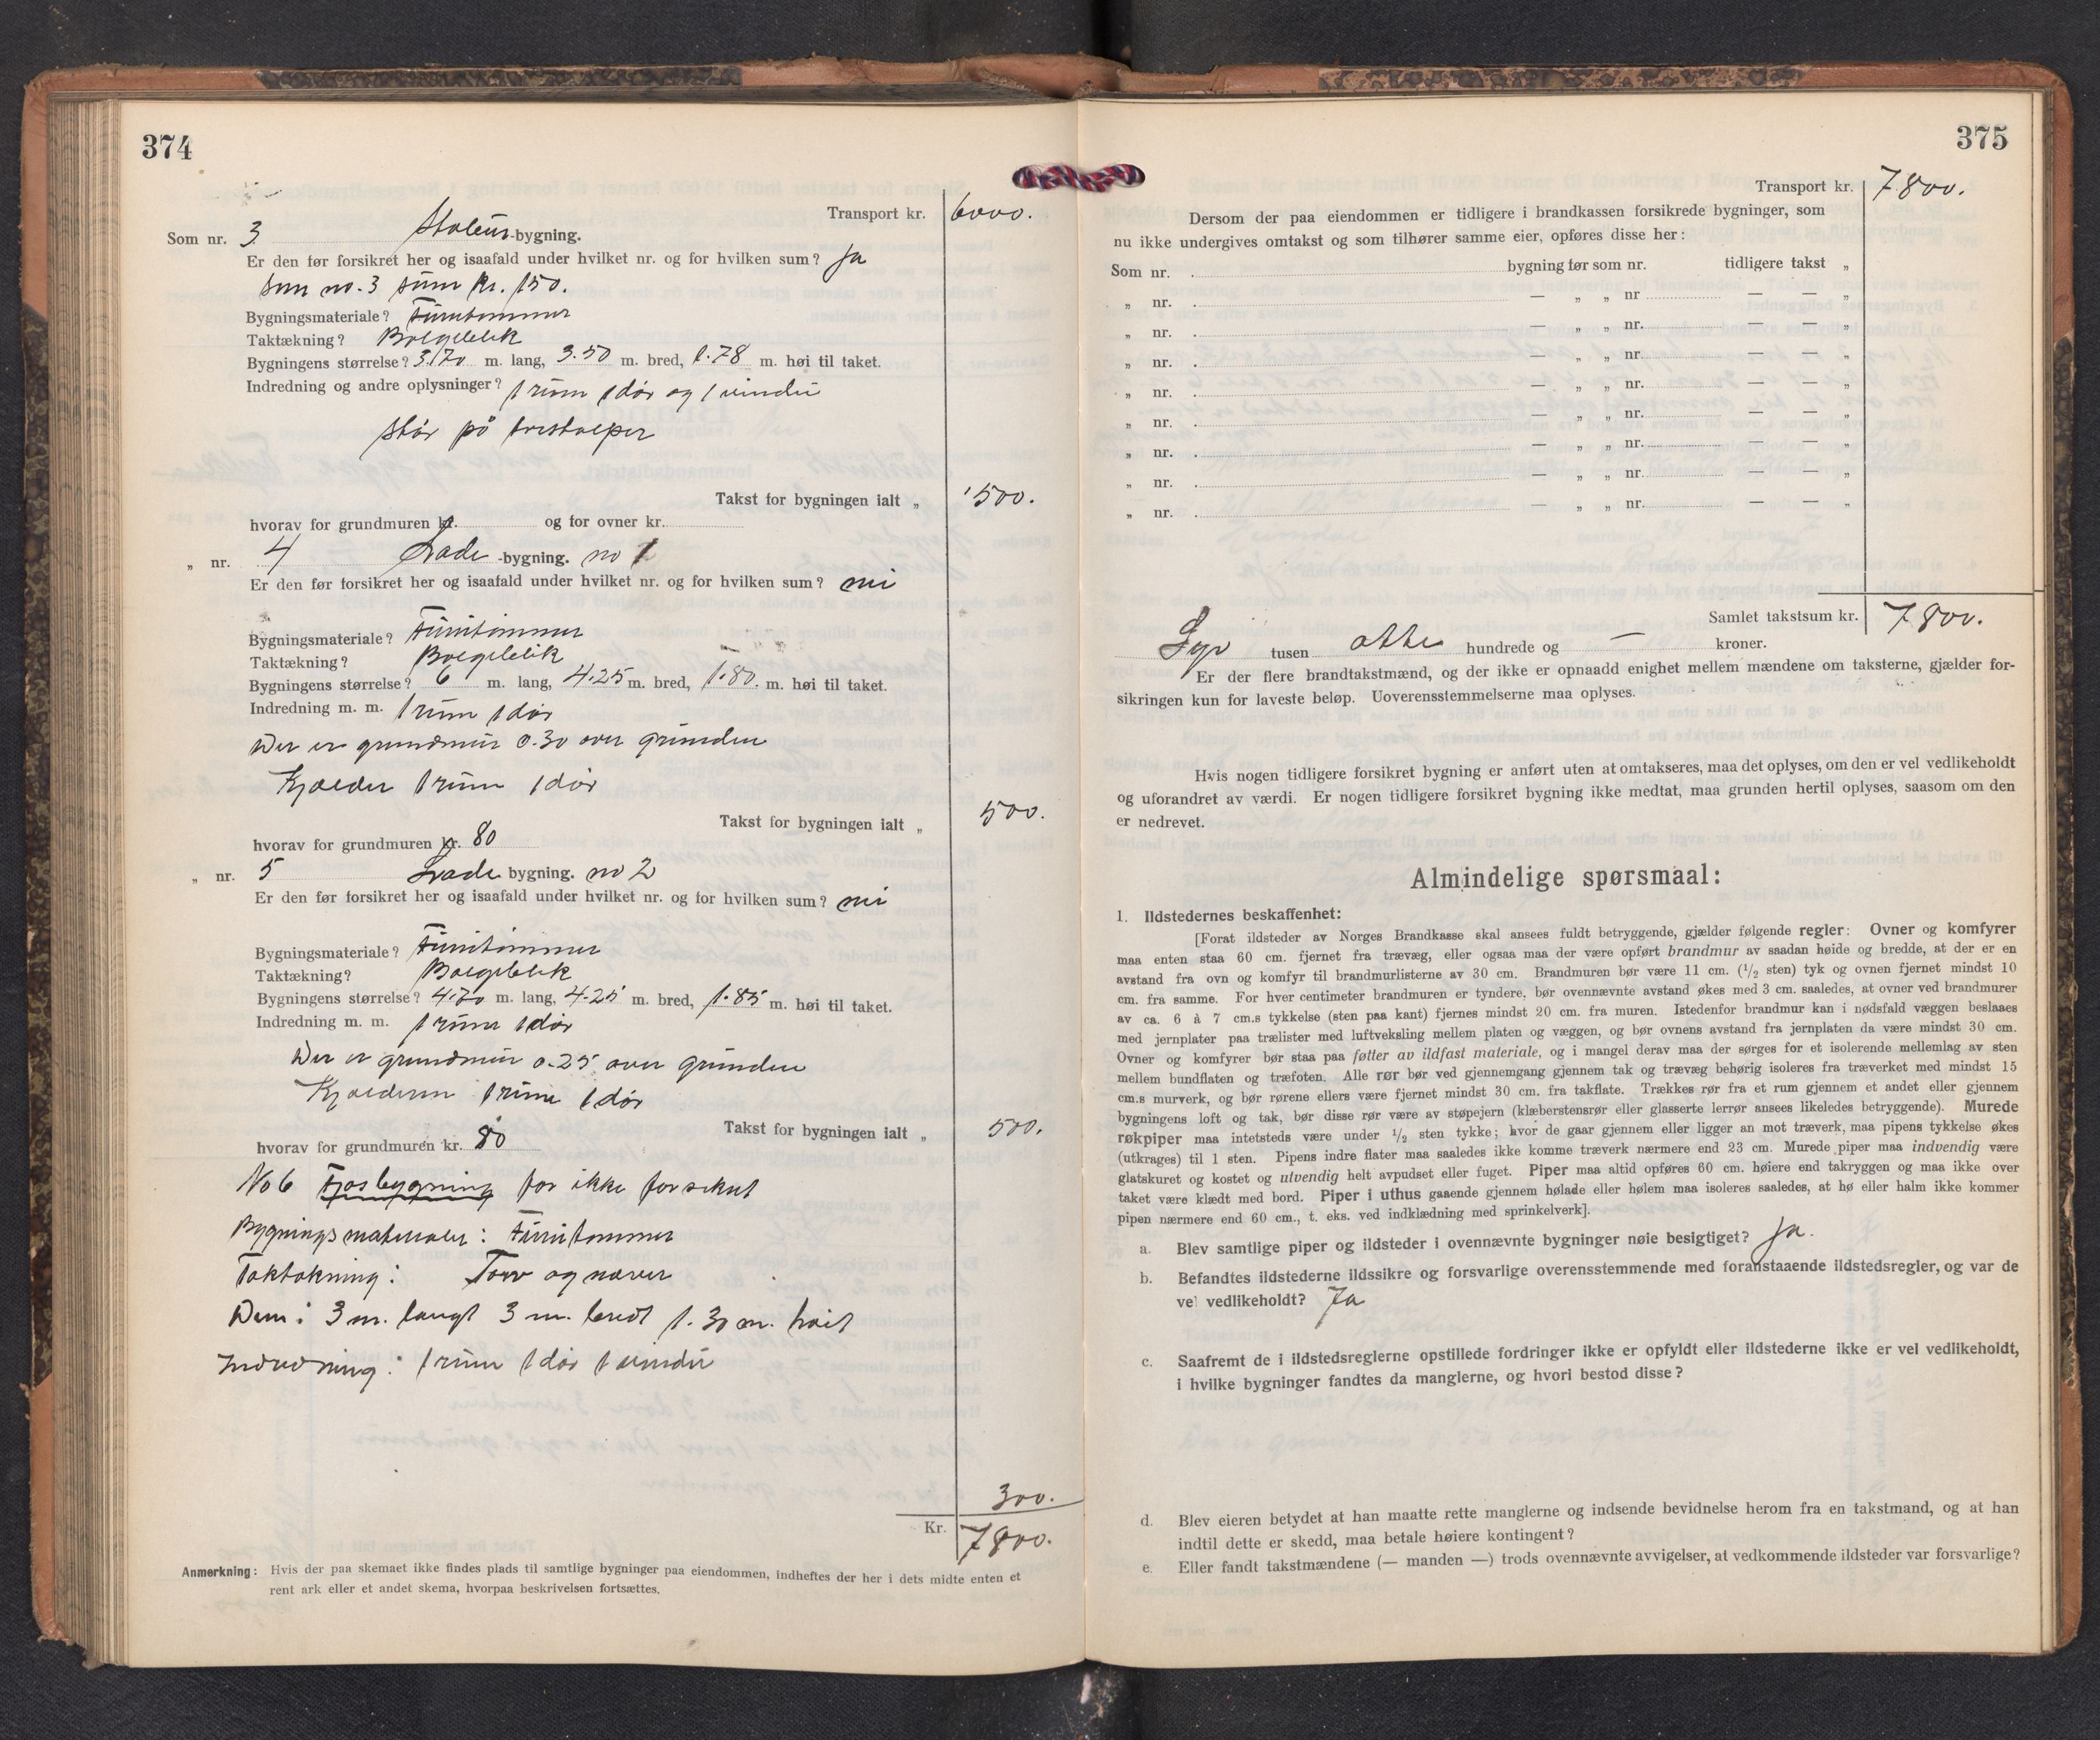 374
Transport kr. 6000.
Som nr. 3 Stabur-bygning.
Er den før forsikret her og isaafald under hvilket nr. og for hvilken sum? Ja
Som no. 3 sum kr. 150.
Bygningsmateriale? Furutømmer
Taktækning? Bølgeblik
Bygningens størrelse? 3.70 m. lang, 3.50 m. bred, 1.78 m. høi til taket.
Indredning og andre oplysninger? 1 rum 1 dør og 1 vindu
Står på trestolper
Takst for bygningen ialt „ 500.
hvorav for grundmuren kr. og for ovner kr.
„ nr. 4 Lade-bygning. no 1
Er den før forsikret her og isaafald under hvilket nr. og for hvilken sum? nei
Bygningsmateriale? Furutømmer
Taktækning? Bølgeblik
Bygningens størrelse? 6 m. lang, 4.25 m. bred, 1.80. m. høi til taket.
Indredning m. m. 1 rum 1 dør
Der er grundmur 0.30 over grunden
Kjælder 1 rum 1 dør
Takst for bygningen ialt „ 500.
hvorav for grundmuren kr. 80
„ nr. 5 Lade bygning. no 2
Er den før forsikret her og isaafald under hvilket nr. og for hvilken sum? nei
Bygningsmateriale? Furutømmer
Taktækning? Bølgeblik
Bygningens størrelse? 4.70 m. lang, 4.25 m. bred, 1.85 m. høi til taket.
Indredning m. m. 1 rum 1 dør
Der er grundmur 0.25 over grunden
Kjælderen 1 rum 1 dør
Takst for bygningen ialt „ 500.
hvorav for grundmuren kr. 80
No 6 Fjøsbygning før ikke forsikret
Bygningsmaterialer: Furutømmer
Taktækning: Torv og næver
Dem: 3 m. langt 3 m. bredt 1.30 m. høit
Indredning: 1 rum 1 dør 1 vindu
300.
Kr. 7800.
Anmerkning: Hvis der paa skemaet ikke findes plads til samtlige bygninger paa eiendommen, indheftes der her i dets midte enten et
rent ark eller et andet skema, hvorpaa beskrivelsen fortsættes.
375
Transport kr. 7800.
Dersom der paa eiendommen er tidligere i brandkassen forsikrede bygninger, som
nu ikke undergives omtakst og som tilhører samme eier, opføres disse her:
Som nr. bygning før som nr. tidligere takst „
„ nr. — „ „ nr — — „
„ nr. — „ „ nr. — — „
„ nr. — „ „ nr. — — „
„ nr. — „ „ nr. — — „
„ nr. — „ „ nr. — — „
„ nr. — „ „ nr. — — „
„ nr. — „ „ nr. — — „
„ nr. — „ „ nr. — — „
Samlet takstsum kr. 7800.
Syv tusen otte hundrede og — kroner.
Er der flere brandtakstmænd, og der ikke er opnaadd enighet mellem mændene om taksterne, gjælder for-
sikringen kun for laveste beløp. Uoverensstemmelserne maa oplyses.
Hvis nogen tidligere forsikret bygning er anført uten at omtakseres, maa det oplyses, om den er vel vedlikeholdt
og uforandret av værdi. Er nogen tidligere forsikret bygning ikke medtat, maa grunden hertil oplyses, saasom om den
er nedrevet.
Almindelige spørsmaal:
1. Ildstedernes beskaffenhet:
[Forat ildsteder av Norges Brandkasse skal ansees fuldt betryggende, gjælder følgende regler: Ovner og komfyrer
maa enten staa 60 cm. fjernet fra trævæg, eller ogsaa maa der være opført brandmur av saadan høide og bredde, at der er en
avstand fra ovn og komfyr til brandmurlisterne av 30 cm. Brandmuren bør være 11 cm. (1/2 sten) tyk og ovnen fjernet mindst 10
cm. fra samme. For hver centimeter brandmuren er tyndere, bør ovennævnte avstand økes med 3 cm. saaledes, at ovner ved brandmurer
av ca. 6 à 7 cm.s tykkelse (sten paa kant) fjernes mindst 20 cm. fra muren. Istedenfor brandmur kan i nødsfald væggen beslaaes
med jernplater paa trælister med luftveksling mellem platen og væggen, og bør ovnens avstand fra jernplaten da være mindst 30 cm.
Ovner og komfyrer bør staa paa føtter av ildfast materiale, og i mangel derav maa der sørges for et isolerende mellemlag av sten
mellem bundflaten og træfoten. Alle rør bør ved gjennemgang gjennem tak og trævæg behørig isoleres fra træverket med mindst 15
cm.s murverk, og bør rørene ellers være fjernet mindst 30 cm. fra takflate. Trækkes rør fra et rum gjennem et andet eller gjennem
bygningens loft og tak, bør disse rør være av støpejern (klæberstensrør eller glasserte lerrør ansees likeledes betryggende). Murede
røkpiper maa intetsteds være under 1/2 sten tykke; hvor de gaar gjennem eller ligger an mot træverk, maa pipens tykkelse økes
(utkrages) til 1 sten. Pipens indre flater maa saaledes ikke komme træverk nærmere end 23 cm. Murede piper maa indvendig være
glatskuret og kostet og utvendig helt avpudset eller fuget. Piper maa altid opføres 60 cm. høiere end takryggen og maa ikke over
taket være klædt med bord. Piper i uthus gaaende gjennem hølade eller hølem maa isoleres saaledes, at hø eller halm ikke kommer
pipen nærmere end 60 cm., t. eks. ved indklædning med sprinkelverk].
a. Blev samtlige piper og ildsteder i ovennævnte bygninger nøie besigtiget? Ja.
b. Befandtes ildstederne ildssikre og forsvarlige overensstemmende med foranstaaende ildstedsregler, og var de
vel vedlikeholdt? Ja
c. Saafremt de i ildstedsreglerne opstillede fordringer ikke er opfyldt eller ildstederne ikke er vel vedlikeholdt,
i hvilke bygninger fandtes da manglerne, og hvori bestod disse?
d. Blev eieren betydet at han maatte rette manglerne og indsende bevidnelse herom fra en takstmand, og at han
indtil dette er skedd, maa betale høiere kontingent?
e. Eller fandt takstmændene (— manden —) trods ovennævnte avvigelser, at vedkommende ildsteder var forsvarlige?